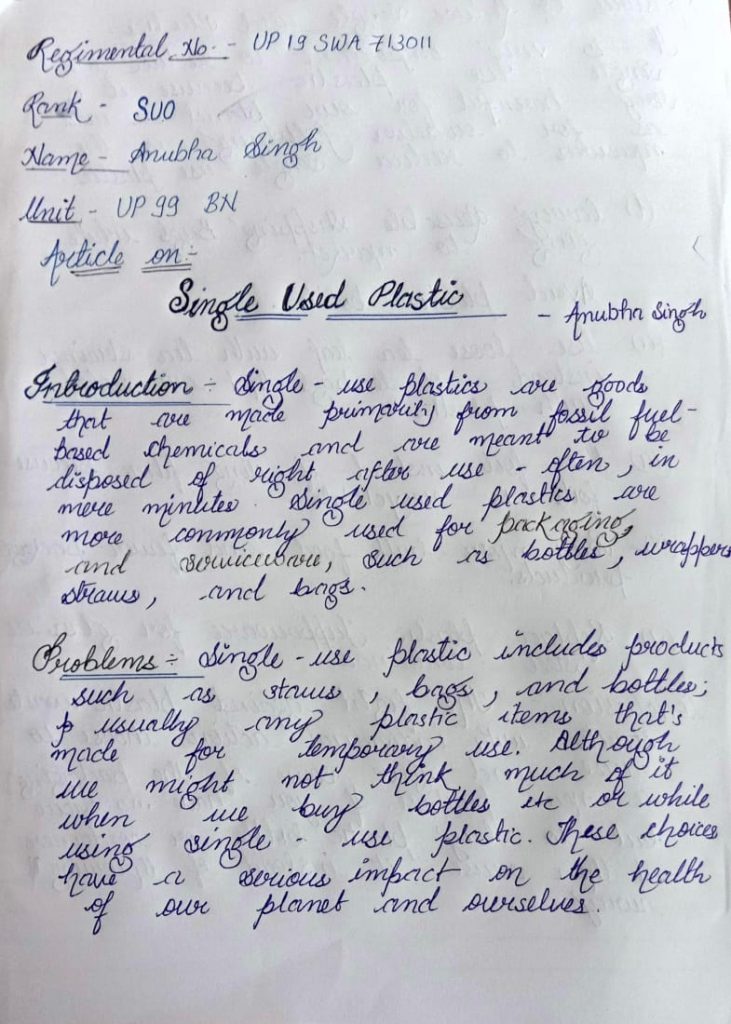 Regimental No. - UP 19 SWA 713011
Rank - SUO
Name - Anubha Singh
Unit - UP 99 BN
Article on :-
Single Used Plastic
- Anubha Singh
Introduction :- Single - use plastics are goods
that are made primarily from fossil fuel-
based chemicals and are meant to be
disposed of right after use - often, in
mere minutes. Single used plastics are
more commonly used for packaging,
and serviceware, such as bottles, wrappers
straws, and bags.
Problems :- Single - use plastic includes products
such as staws, bags, and bottles;
usually any plastic items that's
made for temporary use. Although
we might not think much of it
when we buy bottles etc or while
using single - use plastic. These choices
have a serious impact on the health
of our planet and ourselves.